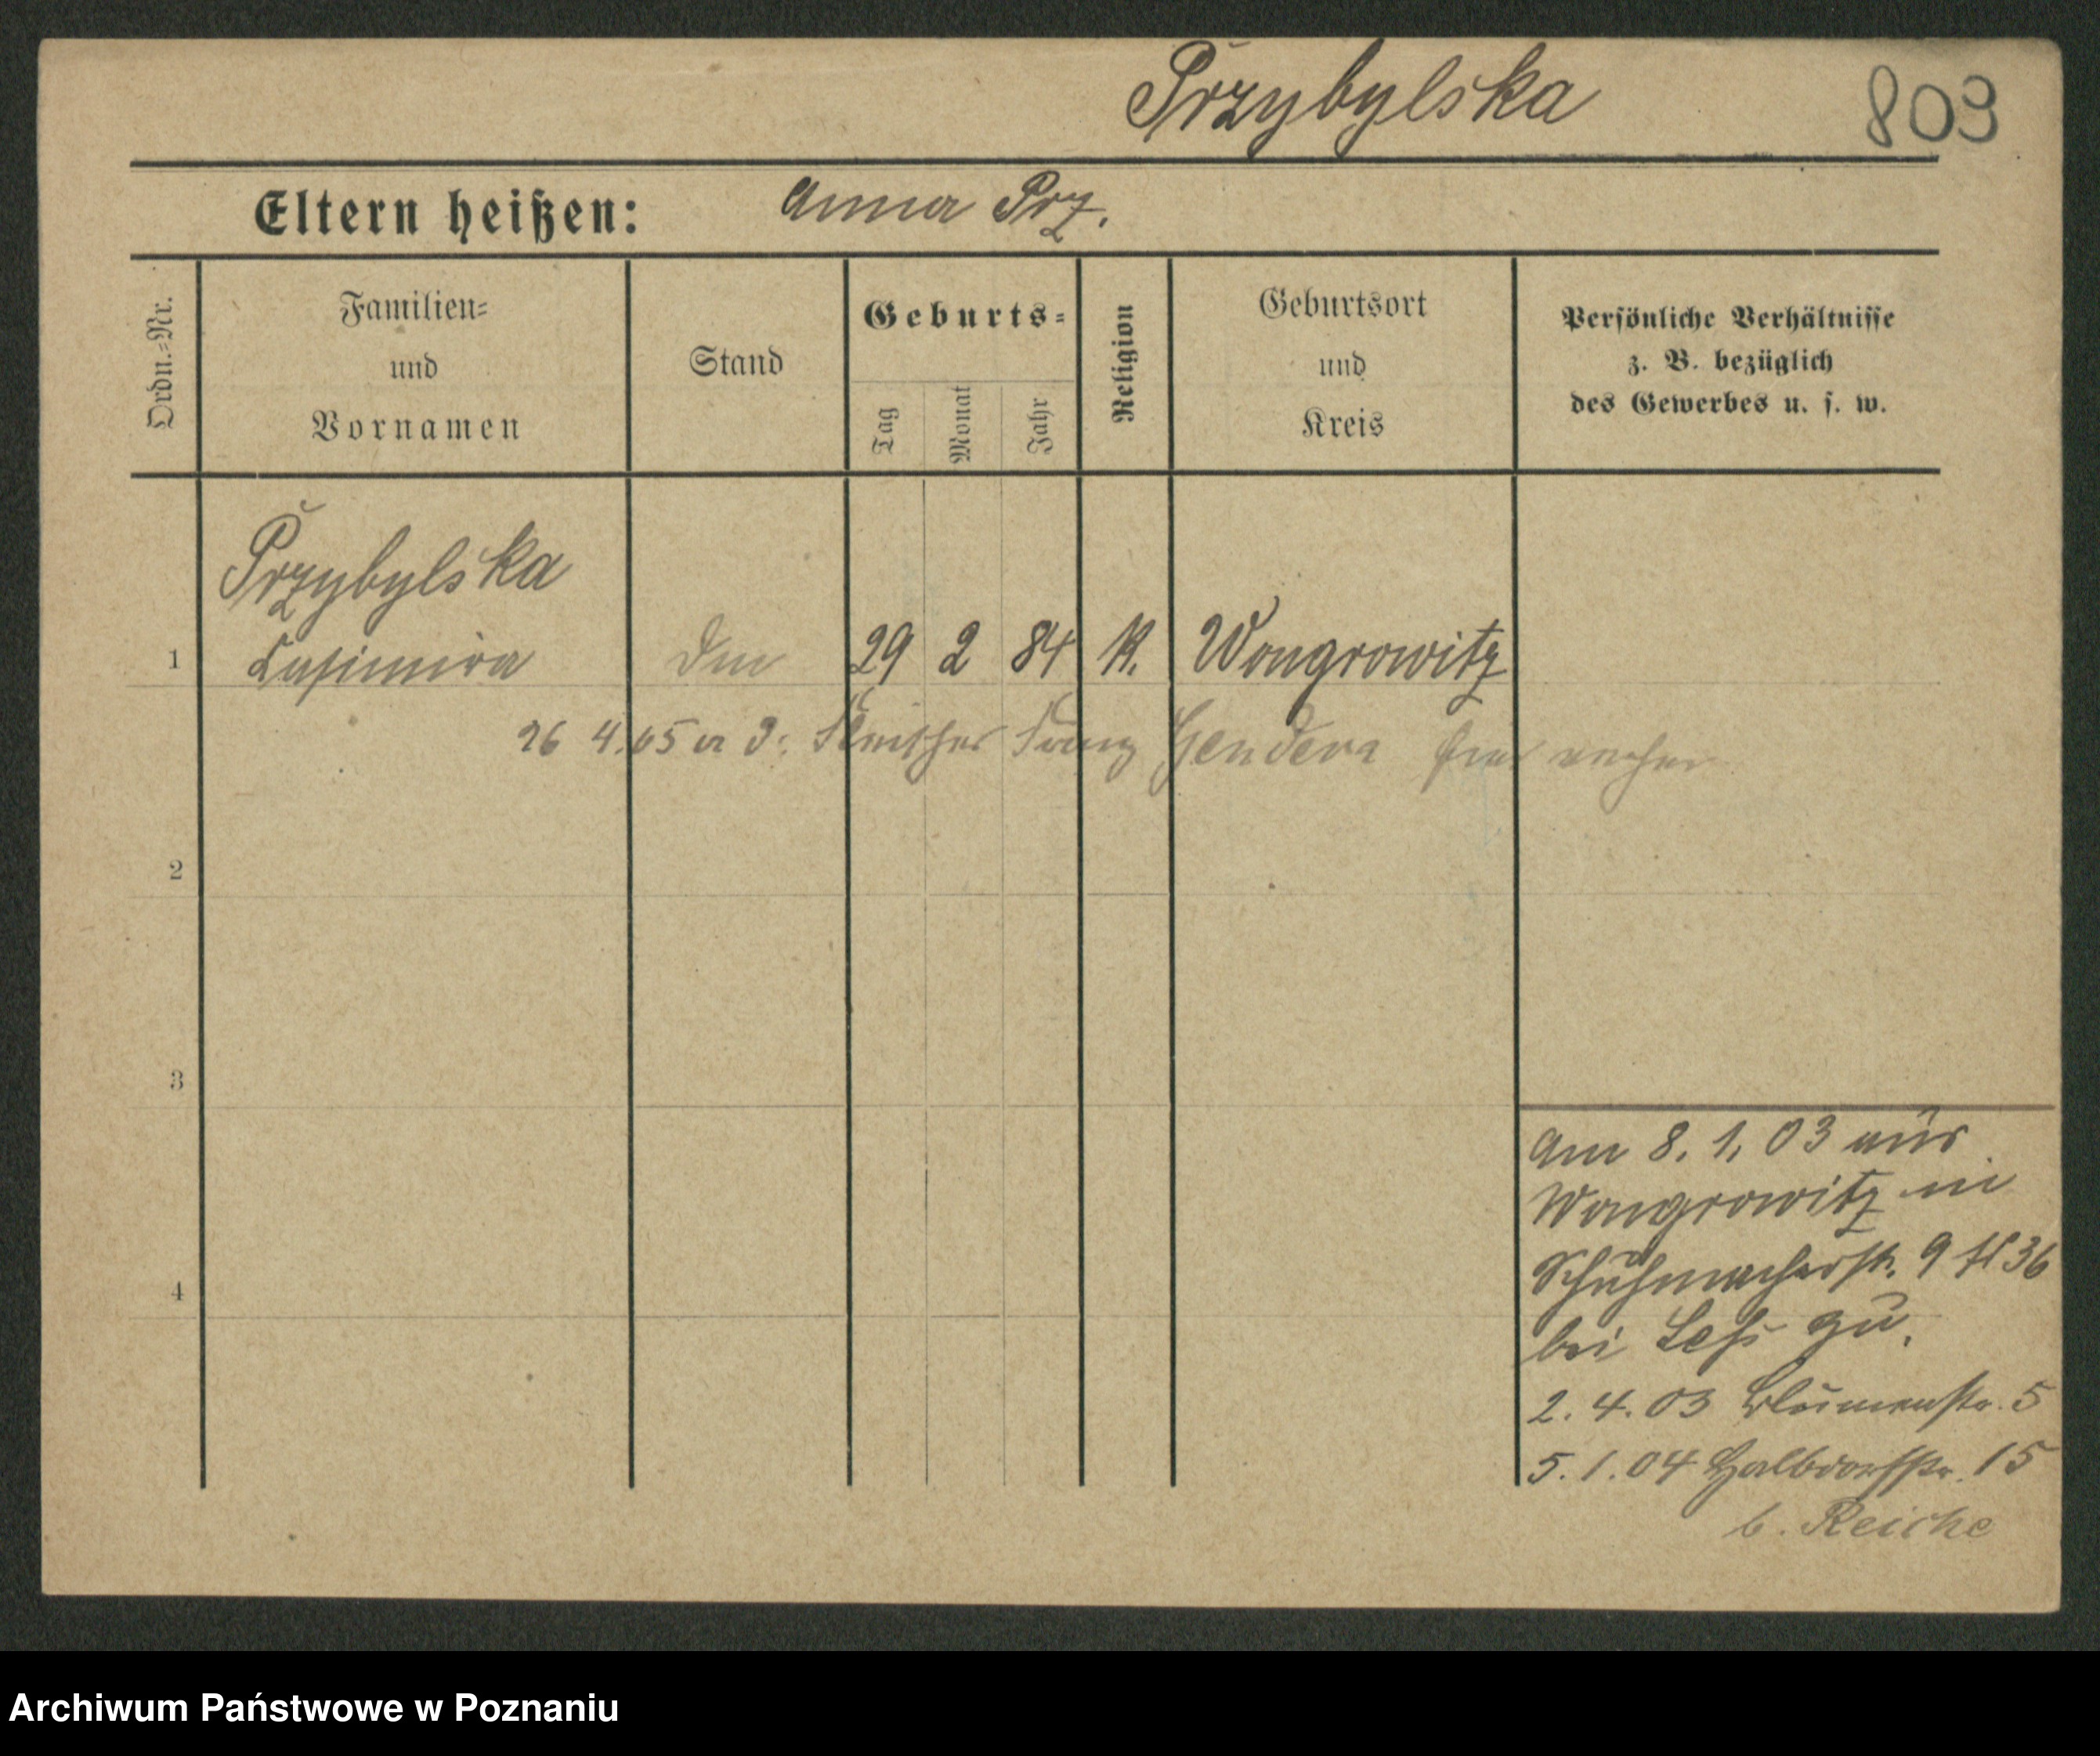 Przybylska 809
Eltern heißen: Anna Prz.
Ordn.=Nr.
Familien=
und
Vornamen
Stand
Geburts=
Tag
Monat
Jahr
Religion
Geburtsort
und
Kreis
Persönliche Verhältnisse
z. B. bezüglich
des Gewerbes u. s. w.
Przybylska
1 Casimira 29 2 84 K. Wongrowitz
26 4. 05 a d. Franz Gendera
2
3
4
Am 8. 1. 03 aus
Wongrowitz in
Schuhmacherstr. 9 36
bei zu.
2. 4. 03 Blumenstr. 5
5. 1. 04 Halbdorfstr. 15
b. Reiche
Archiwum Państwowe w Poznaniu